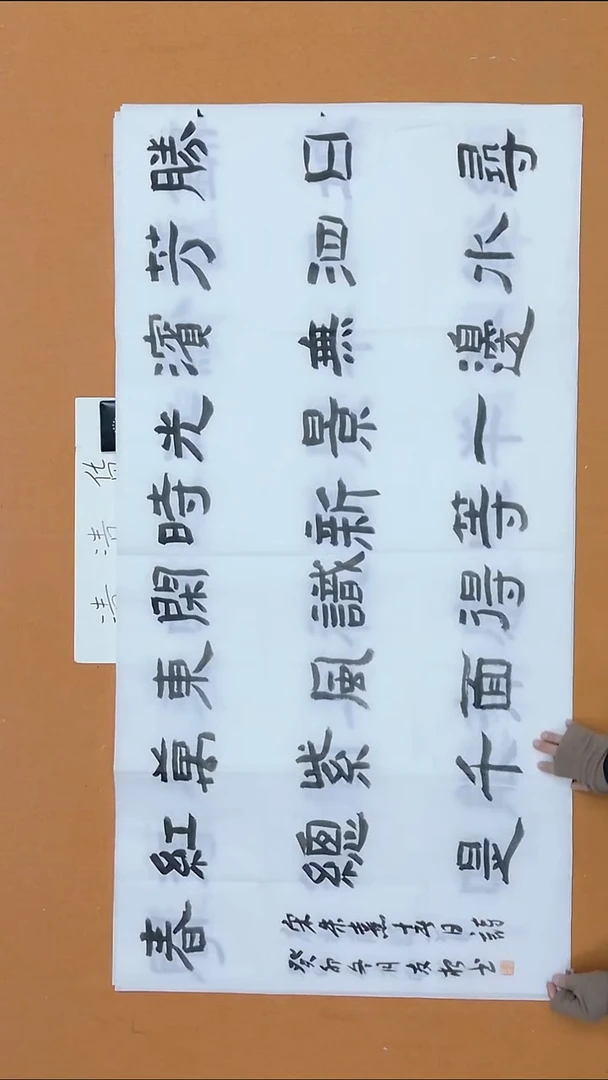 勝日尋
芳泗水
濱無邊
光景一
時新等
閑識得
東風面
萬紫千
紅總是
春
宋朱熹春日詩
癸卯年月友松书